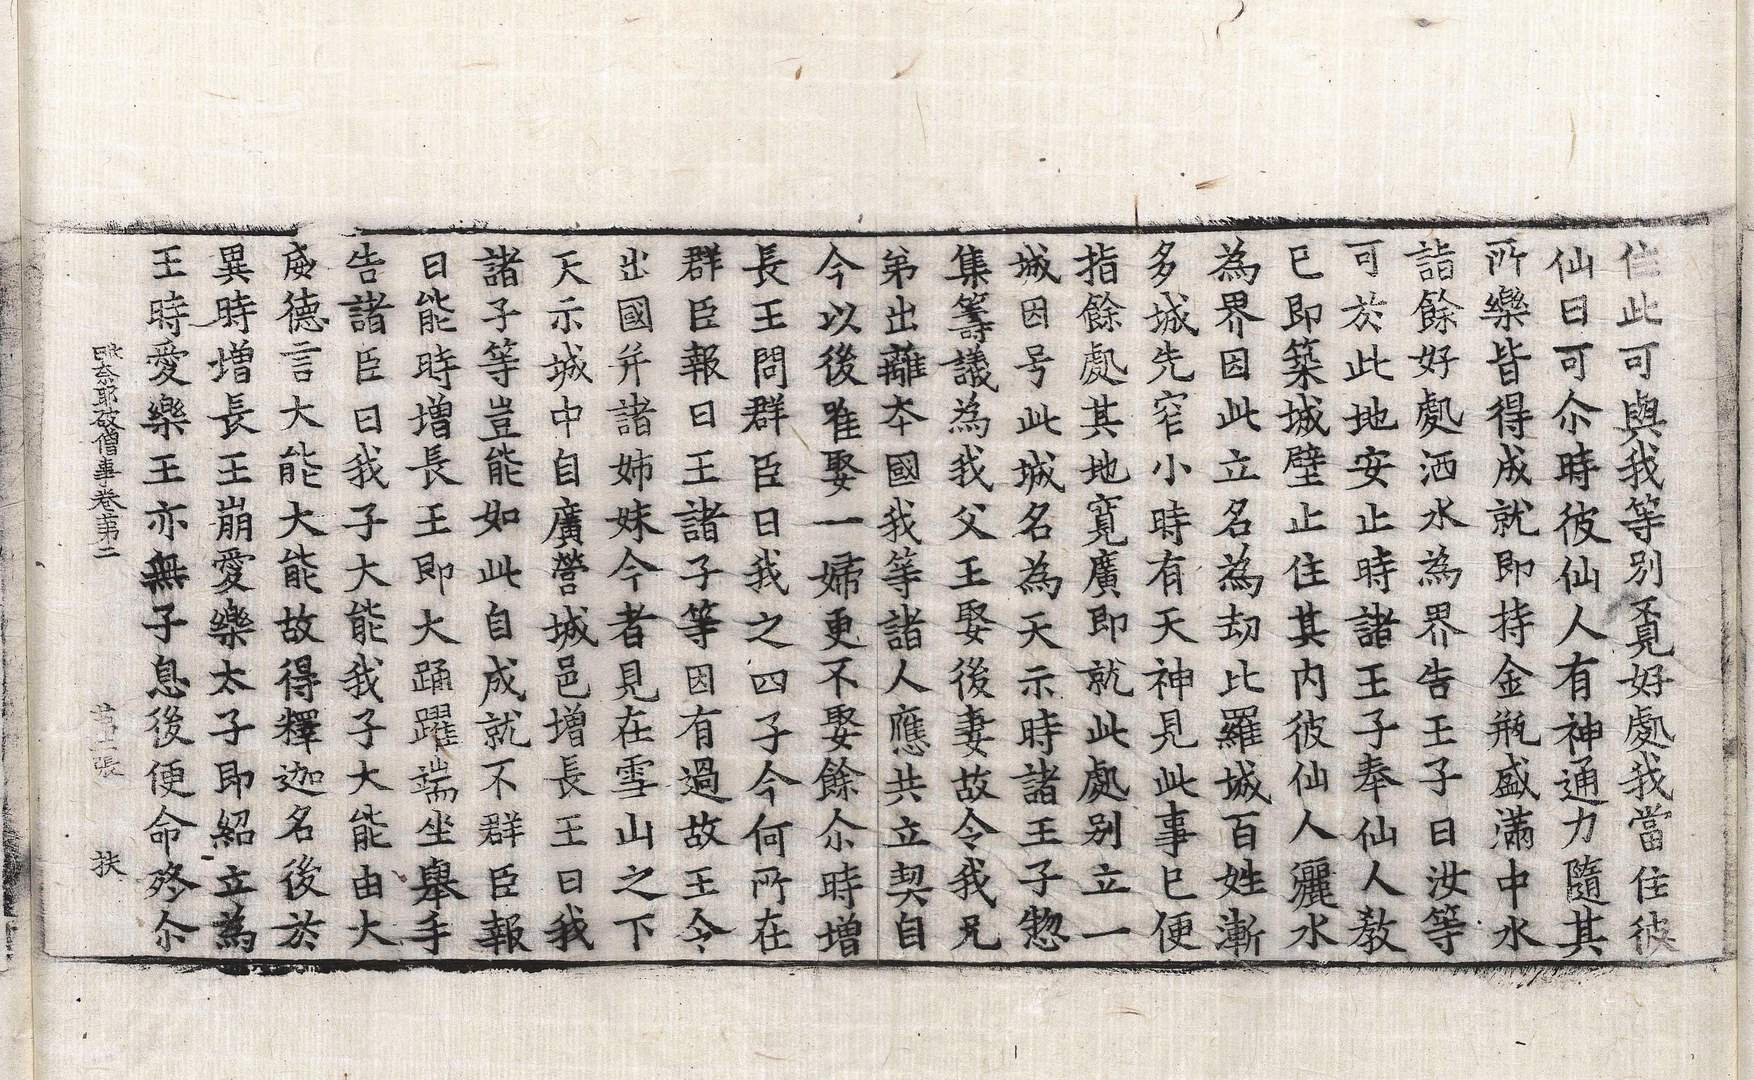 住此可與我等別覓好處我當住彼
仙曰可尒時彼仙人有神通力隨其
所樂皆得成就即持金瓶盛滿中水
詣餘好處洒水為界告王子曰汝等
可於此地安止時諸王子奉仙人教
已即築城壁止住其內彼仙人灑水
為界因此立名為劫比羅城百姓漸
多城先窄小時有天神見此事已便
指餘處其地寬廣即就此處別立一
城因号此城名為天示時諸王子惣
集籌議為我父王娶後妻故令我兄
弟出離本國我等諸人應共立契自
今以後唯娶一婦更不娶餘尒時增
長王問群臣曰我之四子今何所在
群臣報曰王諸子等因有過故王令
出國并諸姉妹今者見在雪山之下
天示城中自廣營城邑增長王曰我
諸子等豈能如此自成就不群臣報
曰能時增長王即大踊躍端坐舉手
告諸臣曰我子大能我子大能由大
威德言大能大能故得釋迦名後於
異時增長王崩愛樂太子即紹立為
王時愛樂王亦無子息後便命終尒
毗奈耶破僧事卷第二 第二張 扶